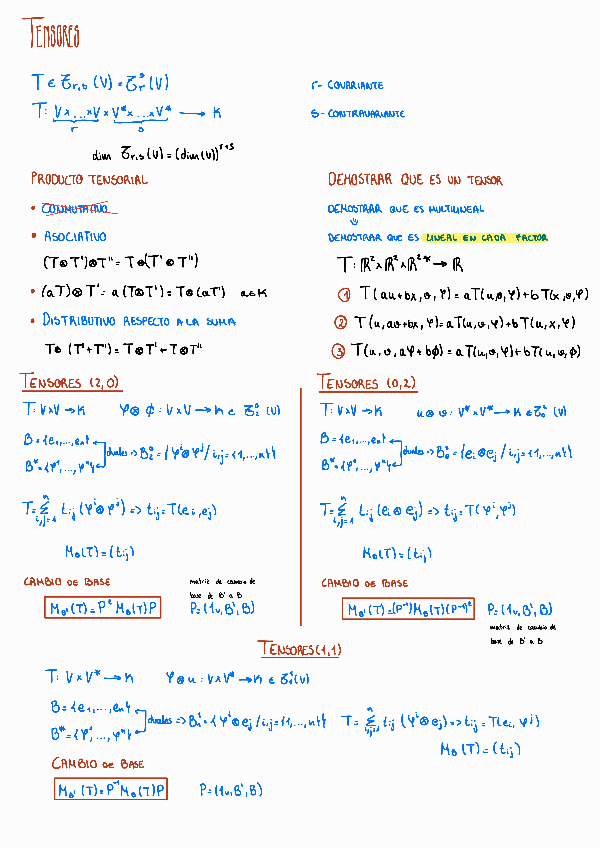 TENSORES
T ∈ 𝒯r,s (V) = 𝒯ʳˢ (V)
T: V×...×V × V*×...×V* → K
r s
dim 𝒯r,s (V) = (dim(V))^r+s
r- COVARIANTE
s- CONTRAVARIANTE
PRODUCTO TENSORIAL
• CONMUTATIVO
• ASOCIATIVO
(T⊗T')⊗T'' = T⊗(T'⊗T'')
• (aT)⊗T' = a(T⊗T') = T⊗(aT') a∈K
• DISTRIBUTIVO RESPECTO A LA SUMA
T⊗(T'+T'') = T⊗T' + T⊗T''
DEMOSTRAR QUE ES UN TENSOR
DEMOSTRAR QUE ES MULTILINEAL
DEMOSTRAR QUE ES LINEAL EN CADA FACTOR
T: ℝ²×ℝ²×ℝ²* → ℝ
① T(au+bx,v,φ) = aT(u,v,φ)+bT(x,v,φ)
② T(u,av+bx,φ) = aT(u,v,φ)+bT(u,x,φ)
③ T(u,v,aφ+bϕ) = aT(u,v,φ)+bT(u,v,ϕ)
TENSORES (2,0)
T: V×V → K φ⊗ϕ: V×V → K ∈ 𝒯₂⁰ (V)
B = {e1,...,en}
B* = {φ¹,...,φⁿ}
duales => B₂⁰ = {φⁱ⊗φʲ / i,j = {1,...,n}}
T = Σ^n i,j=1 tij (φⁱ⊗φʲ) => tij = T(ei,ej)
MB(T) = (tij)
CAMBIO DE BASE
MB'(T) = Pᵗ MB(T) P
matriz de cambio de
base de B' a B
P = (1v,B',B)
TENSORES (0,2)
T: V×V → K u⊗v: V*×V* → K ∈ 𝒯₀² (V)
B = {e1,...,en}
B* = {φ¹,...,φⁿ}
duales => B₀² = {ei⊗ej / i,j = {1,...,n}}
T = Σ^n i,j=1 tij (ei⊗ej) => tij = T(φⁱ,φʲ)
MB(T) = (tij)
CAMBIO DE BASE
MB'(T) = (P⁻¹) MB(T) (P⁻¹)ᵗ P = (1v,B',B)
matriz de cambio de
base de B' a B
TENSORES (1,1)
T: V×V* → K φ⊗u: V×V* → K ∈ 𝒯₁¹(V)
B = {e1,...,en}
B* = {φ¹,...,φⁿ}
duales => B₁¹ = {φⁱ⊗ej / i,j = {1,...,n}} T = Σ^n i,j=1 tij (φⁱ⊗ej) => tij = T(ei,φʲ)
MB(T) = (tij)
CAMBIO DE BASE
MB'(T) = P⁻¹ MB(T) P P = (1v,B',B)